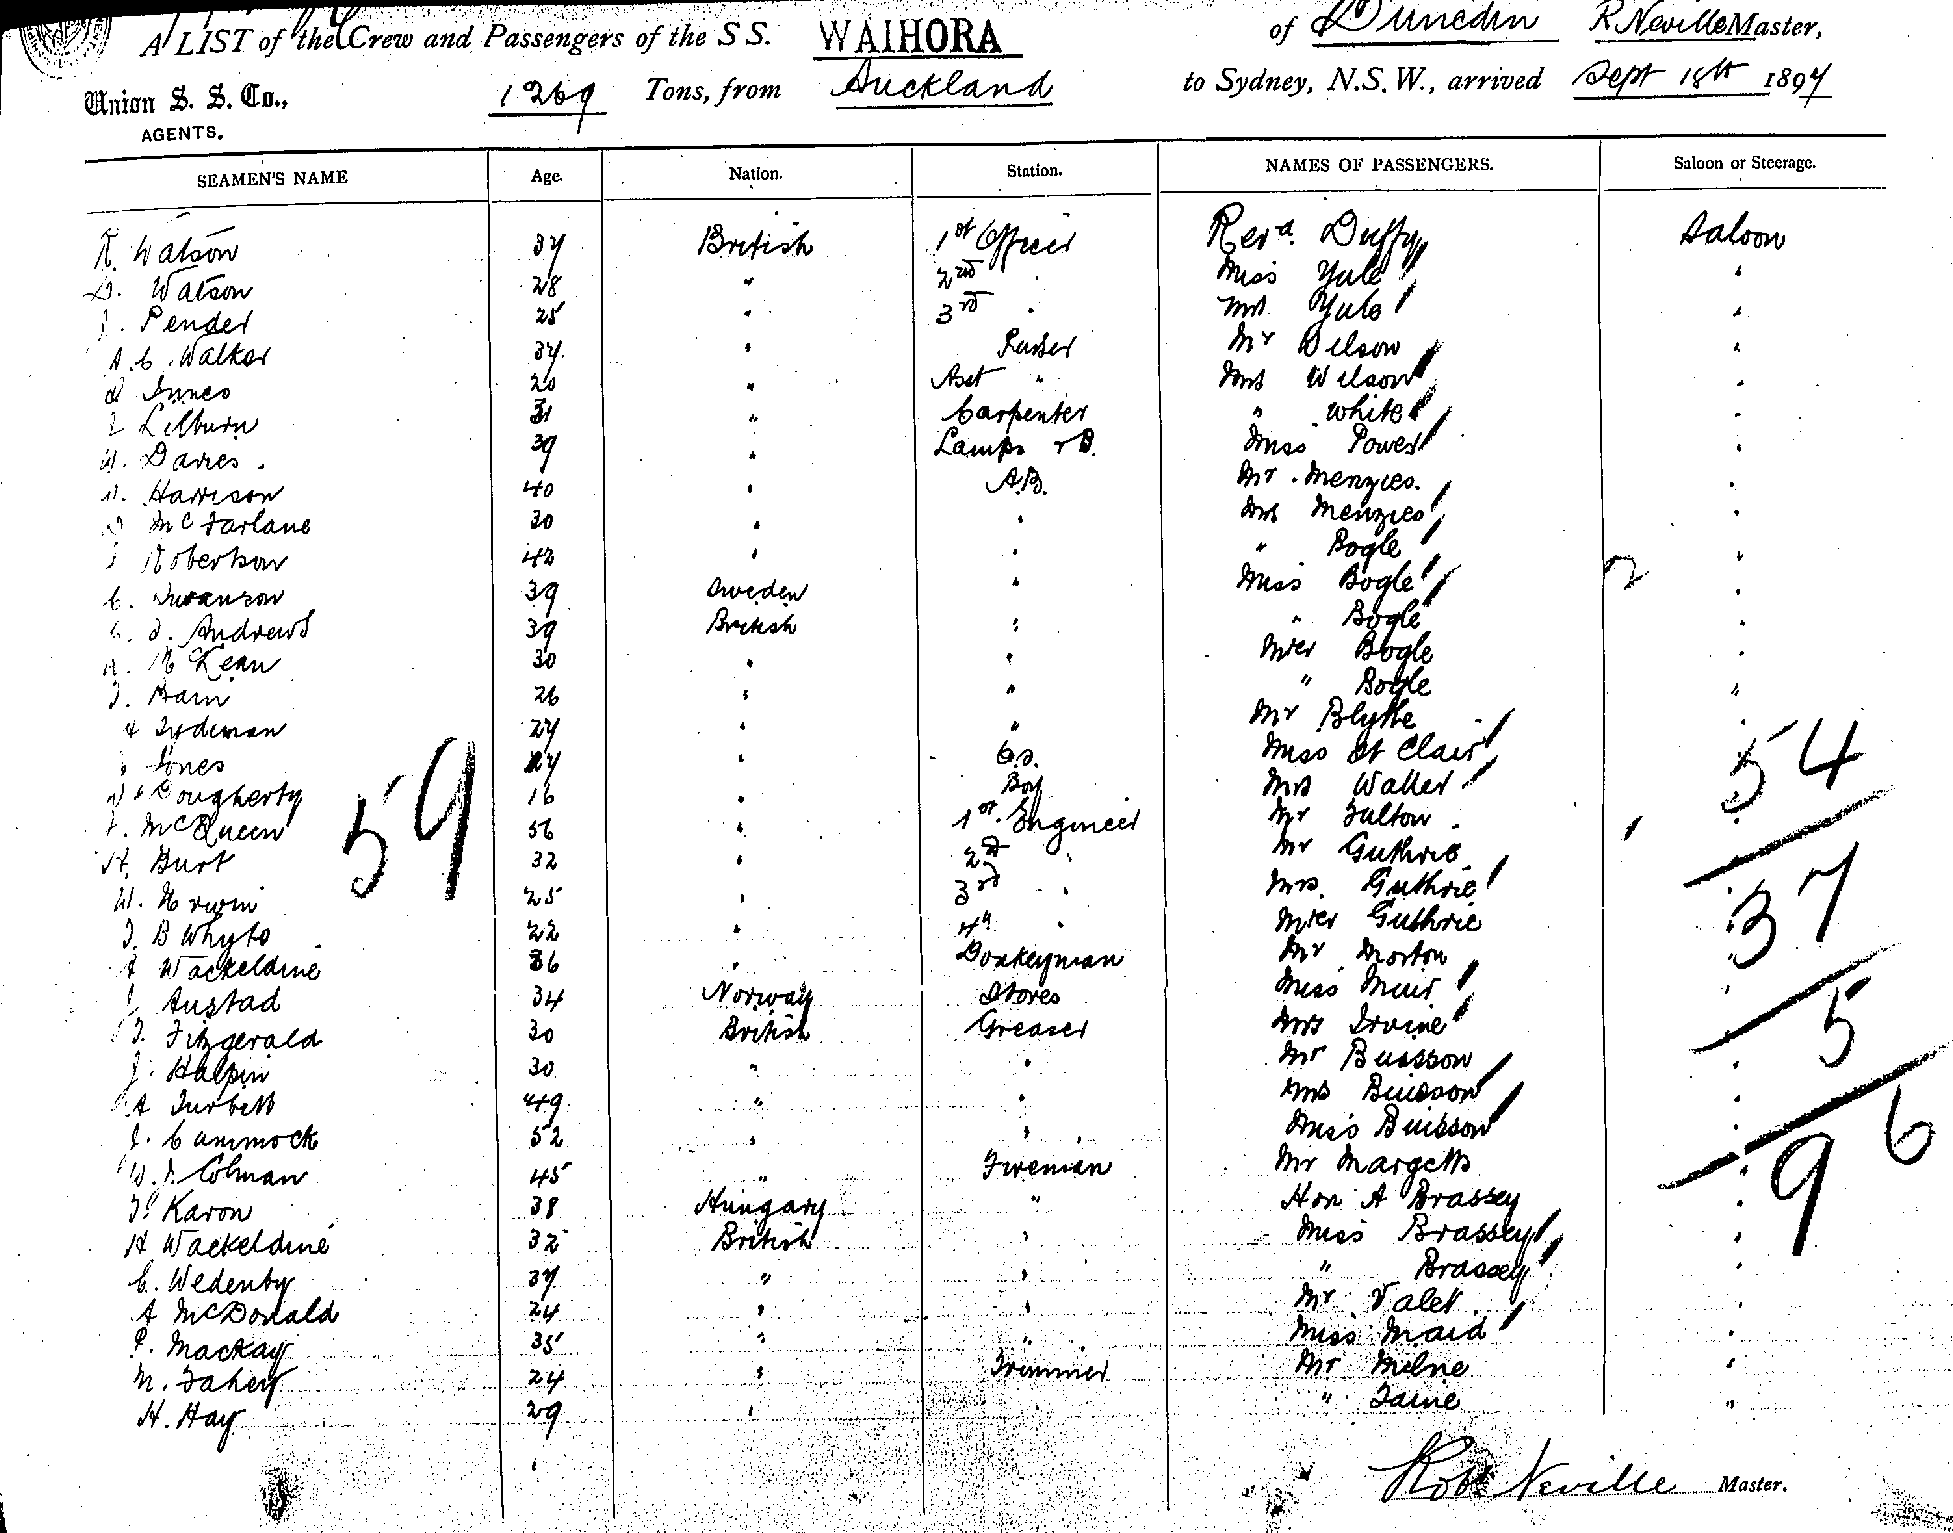 A LIST of the Crew and Passengers of the S S. WAIHORA of Dunedin R Neville Master,
Union S. S. Co., AGENTS. 1269 Tons, from Auckland to Sydney, N.S.W., arrived Sept 18th 1897
SEAMEN'S NAME Age. Nation. Station. NAMES OF PASSENGERS. Saloon or Steerage.
R. Watson 37 British 1st Officer Revd. Duffy Saloon
D. Watson 28 " 2nd " Miss Yule "
J. Pender 25 " 3rd " Mrs Yule "
A. C. Walker 37 " Purser Mr Wilson "
Innes 20 " Asst " Mrs Wilson "
Lilburn 31 " Carpenter " White "
W. Davies. 39 " Lamps & B. Miss Power "
Harrison 40 " A.B. Mr. Menzies. "
McFarlane 30 " " Mrs Menzies "
Robertson 42 " " " Bogle "
C. Swanson 39 Sweden " Miss Bogle "
Andrews 39 British " " Bogle "
Kean 30 " " Mstr Bogle "
Bain 26 " " " Bogle "
Tydeman 27 " " Mr Blythe "
Jones 17 " O.S. Miss St Clair 54
Dougherty 16 " Boy Mrs Waller
McQueen 56 " 1st Engineer Mr Fulton
59
H. Burt 32 " 2d " Mr Guthrie 37
W. Erwin 25 " 3rd " Mrs. Guthrie
J. B Whyte 22 " 4th " Mstr Guthrie
Wackeldine 36 " Donkeyman Mr Morton "
Austad 34 Norway Stores Miss Muir "
Fitzgerald 30 British Greaser Mrs Irvine 5
J. Halpin 30 " " Mr Buisson "
A Turbett 49 " " Mrs Buisson "
J. Cammock 52 " " Miss Buisson " 6
W. J. Colman 45 " Fireman Mr Margetts " 9
Karon 38 Hungary " Hon A Brassey "
H Wackeldine 32 British " Miss Brassey "
C. Wedenby 37 " " " Brassey "
A McDonald 24 " " Mr Valet "
P. Mackay 35 " " Miss Maid "
M. Fahey 24 " Trimmer Mr Milne "
H. Hay 29 " " Taine "
Robt Neville Master.